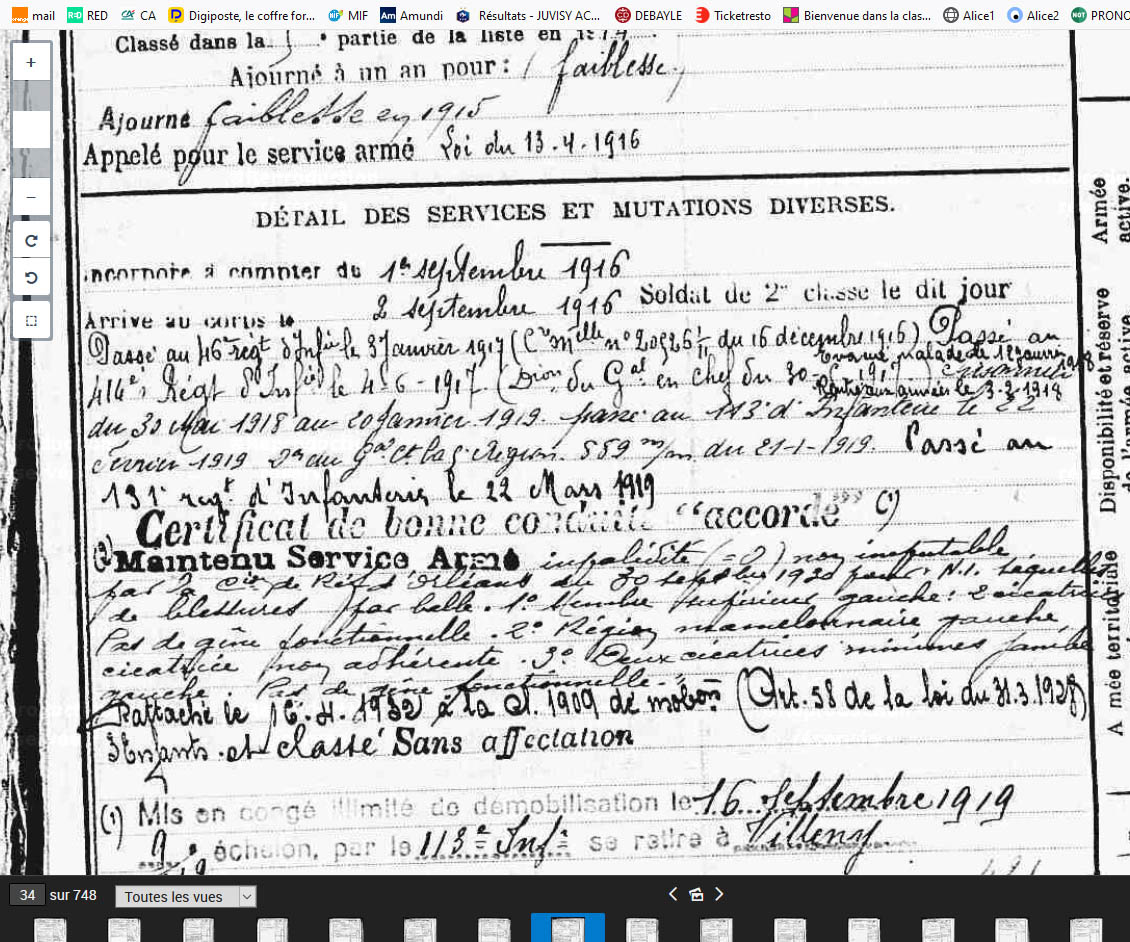 mail RED CA Digiposte, le coffre for... MIF Amundi Résultats - JUVISY AC... DEBAYLE Ticketresto Bienvenue dans la clas... Alice1 Alice2 PRONO
Classé dans la 5e partie de la liste en 1914
Ajourné à un an pour : faiblesse
Ajourné faiblesse en 1915
Appelé pour le service armé Loi du 13.4.1916
DÉTAIL DES SERVICES ET MUTATIONS DIVERSES.
Incorporé à compter du 1er septembre 1916
Arrivé au corps le 2 septembre 1916 Soldat de 2e classe le dit jour
Passé au 46e régt d'Infie le 3 Janvier 1917 (Con mlle n° 20926 du 16 décembre 1916) Passé au
Evacué malade le 12 janvier 1918
414e Régt d'Infie le 4-6-1917 (Dion du Gal en Chef du 30- 1917) Prisonnier
Rentré aux armées le 3-3-1918
du 30 Mai 1918 au 20 janvier 1919 passé au 113e d'Infanterie le 22
février 1919 du Gal Ct la Région 559 du 21-1-1919. Passé au
131e régt d'Infanterie le 22 Mars 1919
Certificat de bonne conduite "accordé" (1)
(2) Maintenu Service Armé invalidité (=0) non imputable
par 2e Con de Réf d'Orléans du 30 septbre 1930 pour : N.I. séquelles
de blessures par balle. 1° Membre supérieur gauche : 2 cicatrices
Pas de gêne fonctionnelle. 2° Région mamelonnaire gauche,
cicatrice non adhérente. 3° Deux cicatrices minimes jambe
gauche. Pas de gêne fonctionnelle.
Rattaché le 16.4.1932 à la cl. 1909 de mobon (Art. 58 de la loi du 31.3.1928)
3 Enfants et classé Sans affectation
(1) Mis en congé illimité de démobilisation le 16 septembre 1919
9e échelon, par le 113e Infie se retire à Villeny
Armée active.
Disponibilité et réserve de l'armée active
Armée territoriale
34 sur 748 Toutes les vues